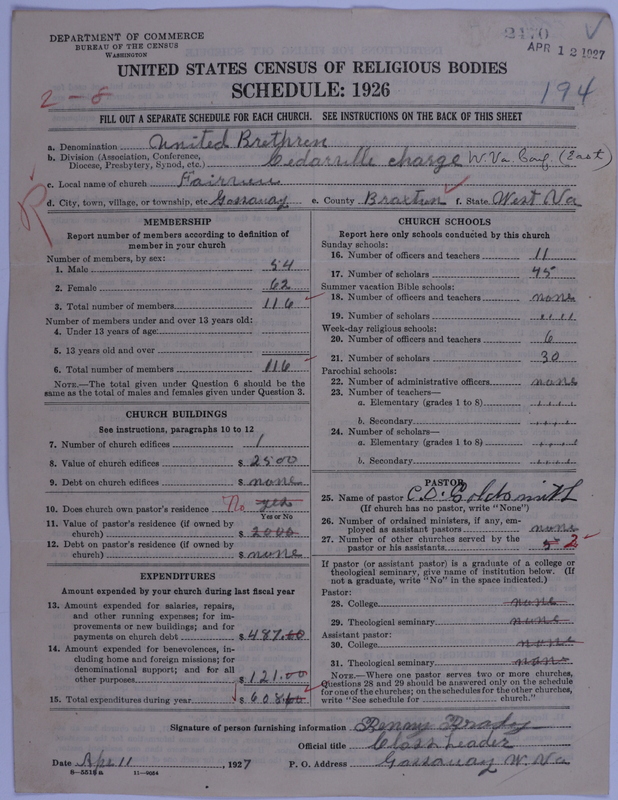 DEPARTMENT OF COMMERCE
BUREAU OF THE CENSUS
WASHINGTON
2170
APR 12 1927
UNITED STATES CENSUS OF RELIGIOUS BODIES
SCHEDULE: 1926
2-8
194
FILL OUT A SEPARATE SCHEDULE FOR EACH CHURCH. SEE INSTRUCTIONS ON THE BACK OF THIS SHEET
a. Denomination United Brethren
b. Division (Association, Conference, Diocese, Presbytery, Synod, etc.) Cedarville charge W. Va. Conf. (East)
c. Local name of church Fairview
d. City, town, village, or township, etc Gassaway e. County Braxton f. State West Va
MEMBERSHIP
Report number of members according to definition of member in your church
Number of members, by sex:
1. Male 54
2. Female 62
3. Total number of members 116
Number of members under and over 13 years old:
4. Under 13 years of age
5. 13 years old and over
6. Total number of members 116
NOTE.—The total given under Question 6 should be the same as the total of males and females given under Question 3.
CHURCH BUILDINGS
See instructions, paragraphs 10 to 12
7. Number of church edifices 1
8. Value of church edifices $ 2500
9. Debt on church edifices $ none
10. Does church own pastor's residence No yes
Yes or No
11. Value of pastor's residence (if owned by church) $ 2000
12. Debt on pastor's residence (if owned by church) $ none
EXPENDITURES
Amount expended by your church during last fiscal year
13. Amount expended for salaries, repairs, and other running expenses; for improvements or new buildings; and for payments on church debt $ 487.00
14. Amount expended for benevolences, including home and foreign missions; for denominational support; and for all other purposes $ 121.00
15. Total expenditures during year $ 608.00
CHURCH SCHOOLS
Report here only schools conducted by this church
Sunday schools:
16. Number of officers and teachers 11
17. Number of scholars 45
Summer vacation Bible schools:
18. Number of officers and teachers none
19. Number of scholars
Week-day religious schools:
20. Number of officers and teachers 6
21. Number of scholars 30
Parochial schools:
22. Number of administrative officers none
23. Number of teachers—
a. Elementary (grades 1 to 8)
b. Secondary
24. Number of scholars—
a. Elementary (grades 1 to 8)
b. Secondary
PASTOR
25. Name of pastor C. D. Goldsmith
(If church has no pastor, write "None")
26. Number of ordained ministers, if any, employed as assistant pastors none
27. Number of other churches served by the pastor or his assistants 5 2
If pastor (or assistant pastor) is a graduate of a college or theological seminary, give name of institution below. (If not a graduate, write "No" in the space indicated.)
Pastor:
28. College none
29. Theological seminary none
Assistant pastor:
30. College none
31. Theological seminary none
NOTE.—Where one pastor serves two or more churches, Questions 28 and 29 should be answered only on the schedule for one of the churches; on the schedules for the other churches, write "See schedule for church."
Signature of person furnishing information Denny Brady
Official title Class Leader
Date Apr 11, 1927 P. O. Address Gassaway W. Va
8-5518a 11-9064